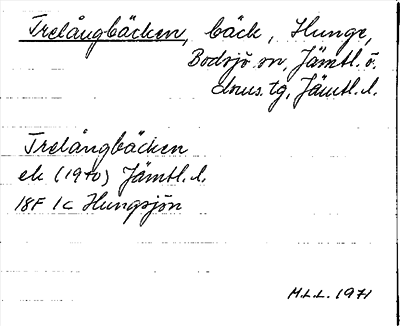 Trelångbäcken, bäck, Hunge,
Bodsjö sn, Jämtl. ö.
dnus. tg, Jämtl. l.
Trelångbäcken
ek (1970) Jämtl. l.
18F 1c Hungsjön
M.L.L. 1971